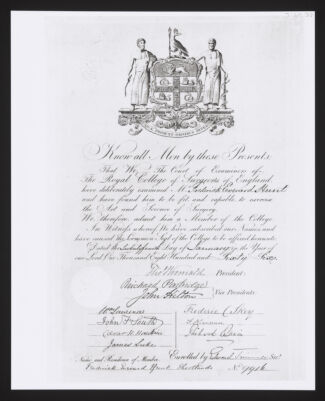 Know all Men by these Presents
That We, The Court of Examiners of
The Royal College of Surgeons of England,
have deliberately examined Mr. Frederick Edward Hurst
and have found him to be fit and capable to exercise
the Art and Science of Surgery.
We therefore, admit him a Member of the College
In Witness whereof We have subscribed our Names and
have caused the Common Seal of the College to be affixed hereunto.
Dated the day of January in the Year of
our Lord One Thousand Eight Hundred and Sixty
President.
Richard Partridge
John Hilton
Vice Presidents.
Wm Lawrence
Frederic C. Skey
John F. South
Caesar H. Hawkins
James Luke
Name and Residence of Member
Enrolled by Edmund Trimmer Secy.
Frederick Edward Hurst No.